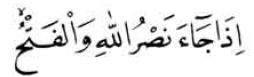 اِذَا جَاۤءَ نَصْرُ اللّٰهِ وَالْفَتْحُۙ